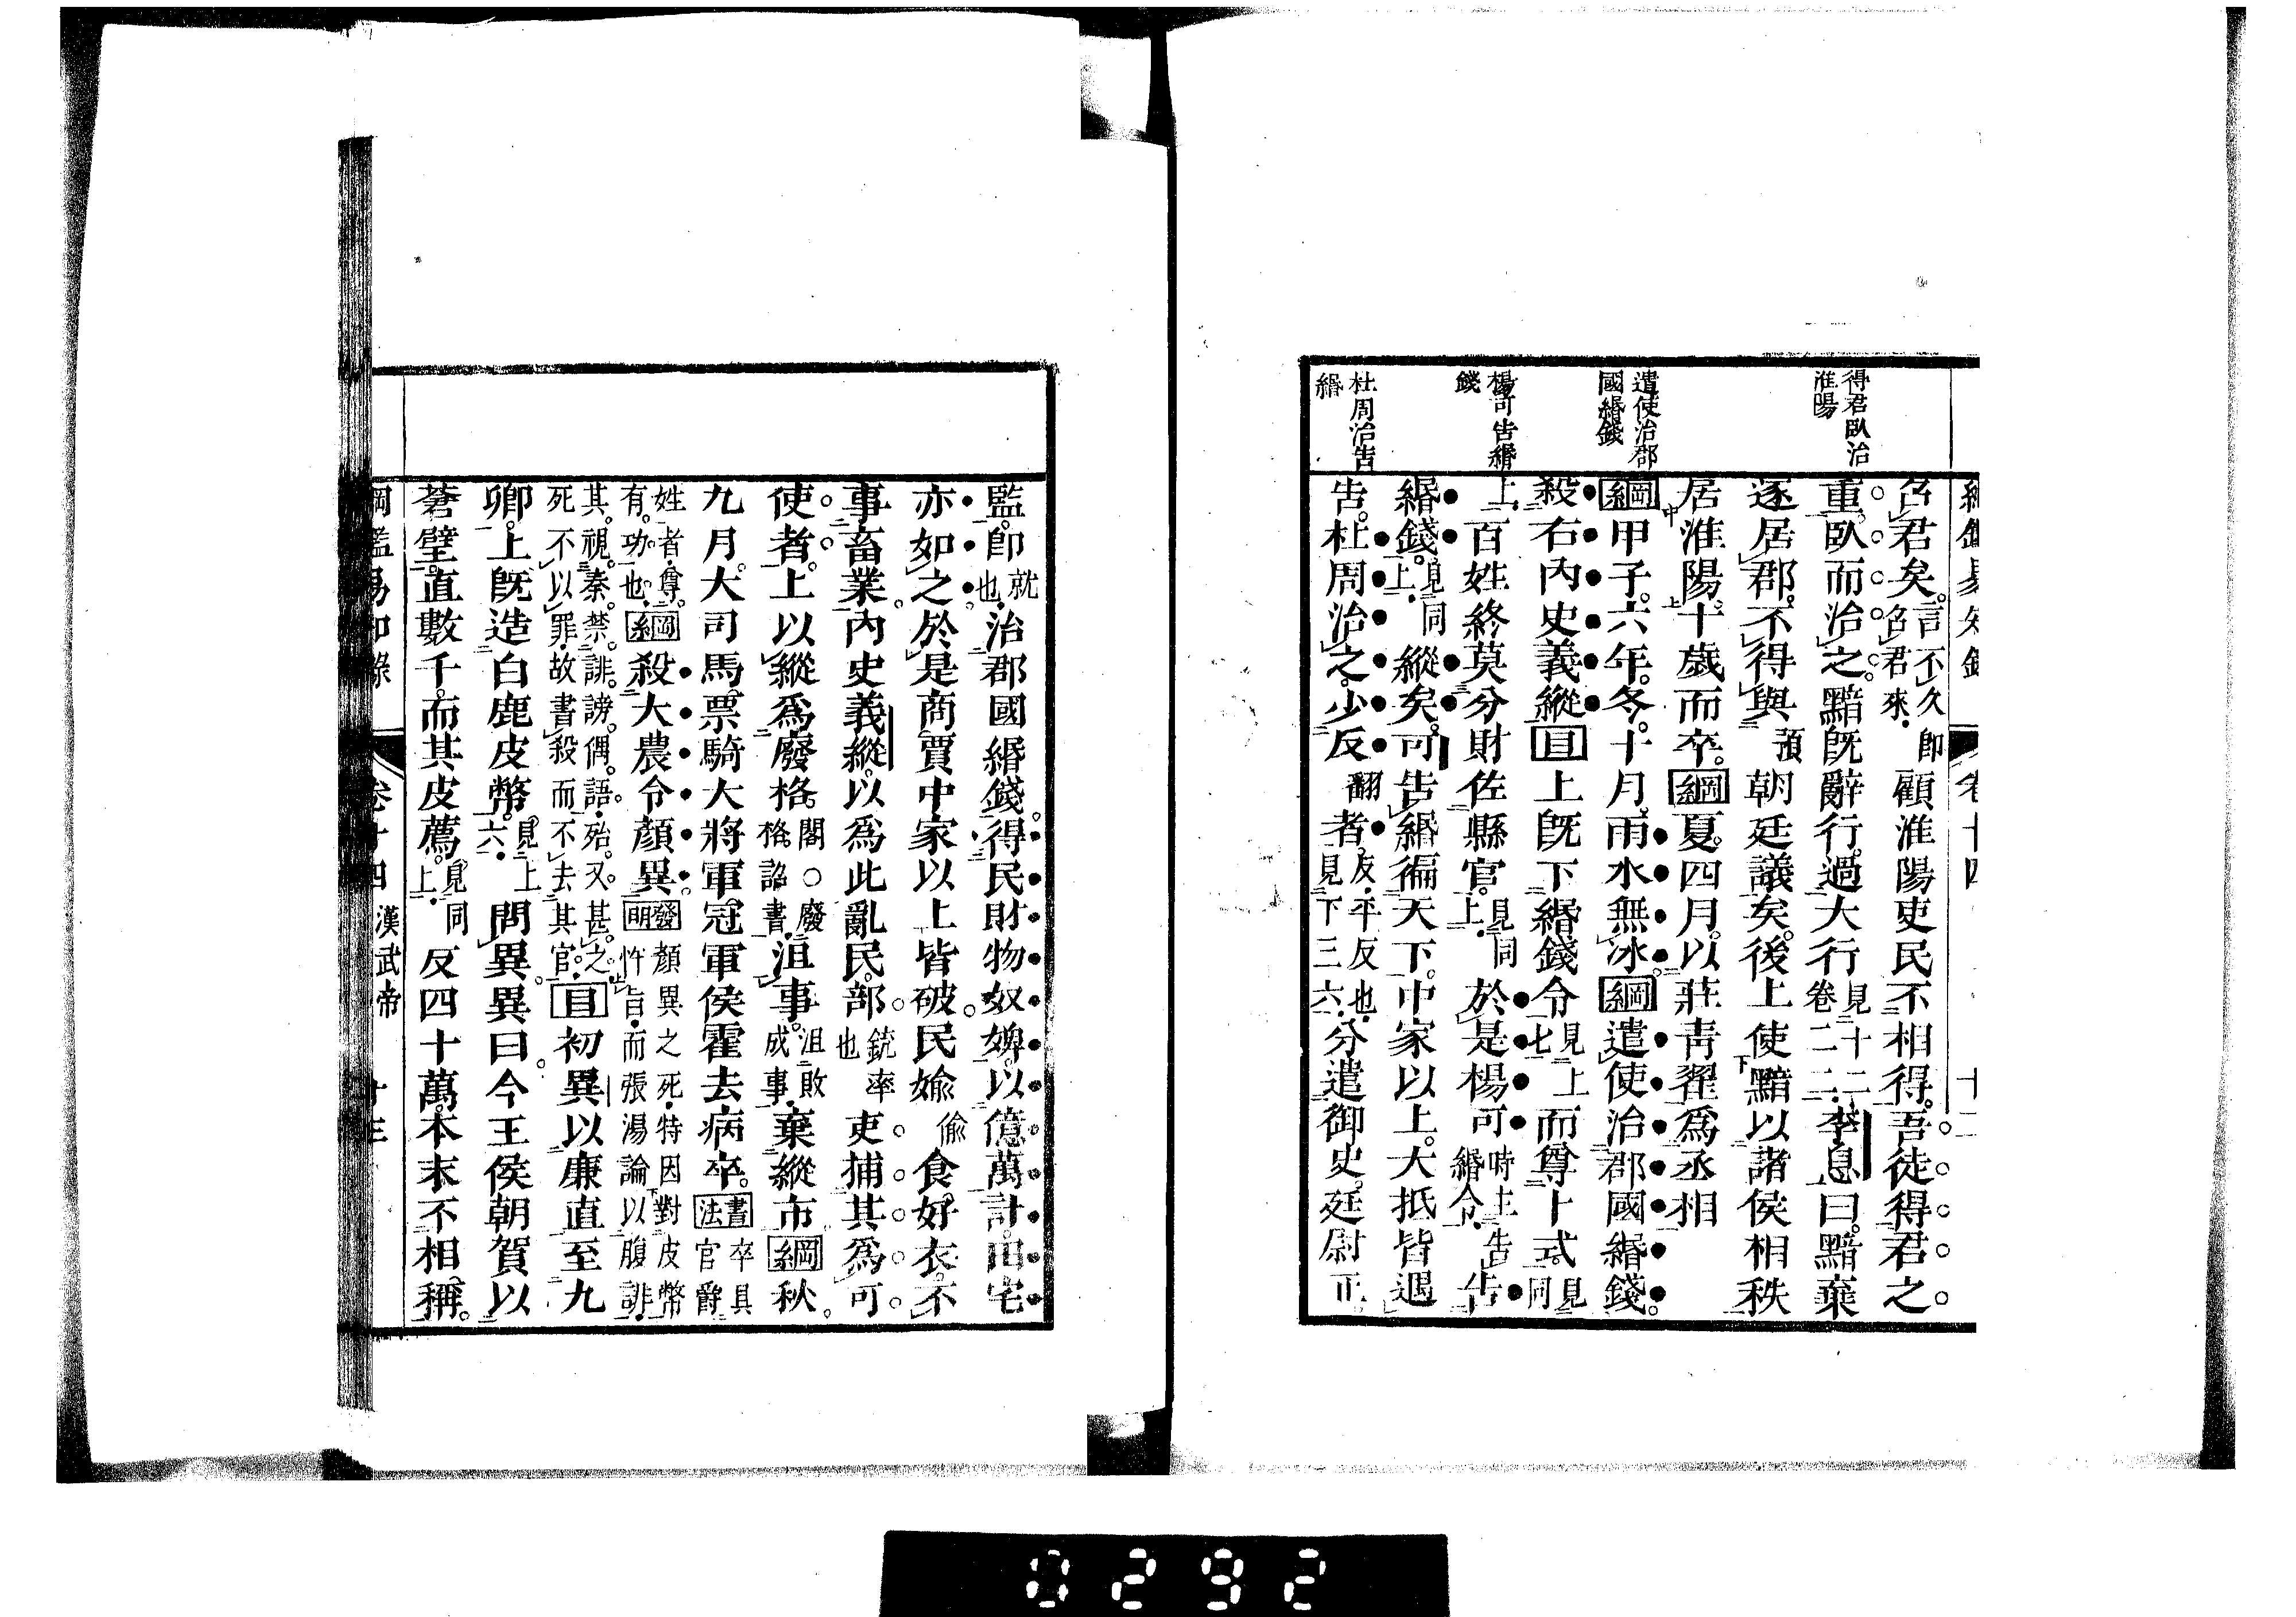 綱鑑易知錄 卷十四 十二
得君臥治
淮陽
遣使治郡
國緡錢
楊可告緡
錢
杜周治告
緡
召君矣。言不久即召君來。顧淮陽吏民不相得。吾徒得君之
重。臥而治之。黯既辭行。過大行見十二卷二二。李息曰。黯棄
逐居郡。不得與預朝廷議矣。後上使黯以諸侯相秩
居淮陽。十歲而卒。綱夏。四月。以莊青翟爲丞相
綱甲子。六年。冬。十月。雨水無冰。綱遣使治郡國緡錢。
殺右內史義縱。目上旣下緡錢令見上七而尊卜式。見同
上。百姓終莫分財佐縣官。見同上。於是楊可時主告緡令。告
緡錢。見同上。縱矣。可告緡徧天下。中家以上。大抵皆遇
告。杜周治之。少反翻者。反。平反也。見下三六。分遣御史。廷尉正
監。即就也。治郡國緡錢。得民財物奴婢。以億萬計。田宅
亦如之。於是商賈中家以上皆破。民婾偷食。好衣。不
事畜業。內史義縱。以爲此亂民。部銃率也吏捕其爲可
使者。上以縱爲廢格。閣〇廢格詔書。沮事。沮敗成事。棄縱市。綱秋。
九月。大司馬票騎大將軍。冠軍侯霍去病卒。書法卒具官爵
姓者。尊有功也。綱殺大農令顏異。發明顏異之死。特因對皮幣忤旨。而張湯論以腹誹。
其。視秦禁。誹謗。偶語。殆。又甚。之死。不以罪。故書殺而不去其官。目初異以廉直至九
卿。上旣造白鹿皮幣。見上六。問異。異曰。今王侯朝賀以
蒼璧。直數千。而其皮薦。見同上。反四十萬。本末不相稱。
綱鑑易知錄 卷十四 漢武帝 十三
0292